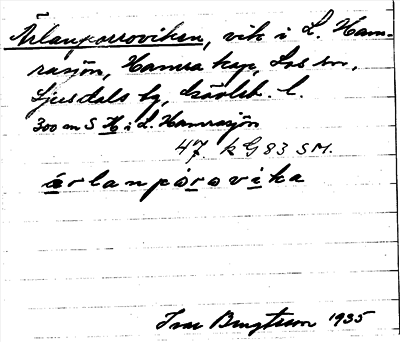 Ärlanporroviken, vik i L. Ham-
rasjön, Hamra kap, Los sn,
Ljusdals tg, Gävleb. l.
300 m S H i L. Hamrasjön
47. k G 83 SM.
ärlanpórovika
Ivar Bengtsson 1935